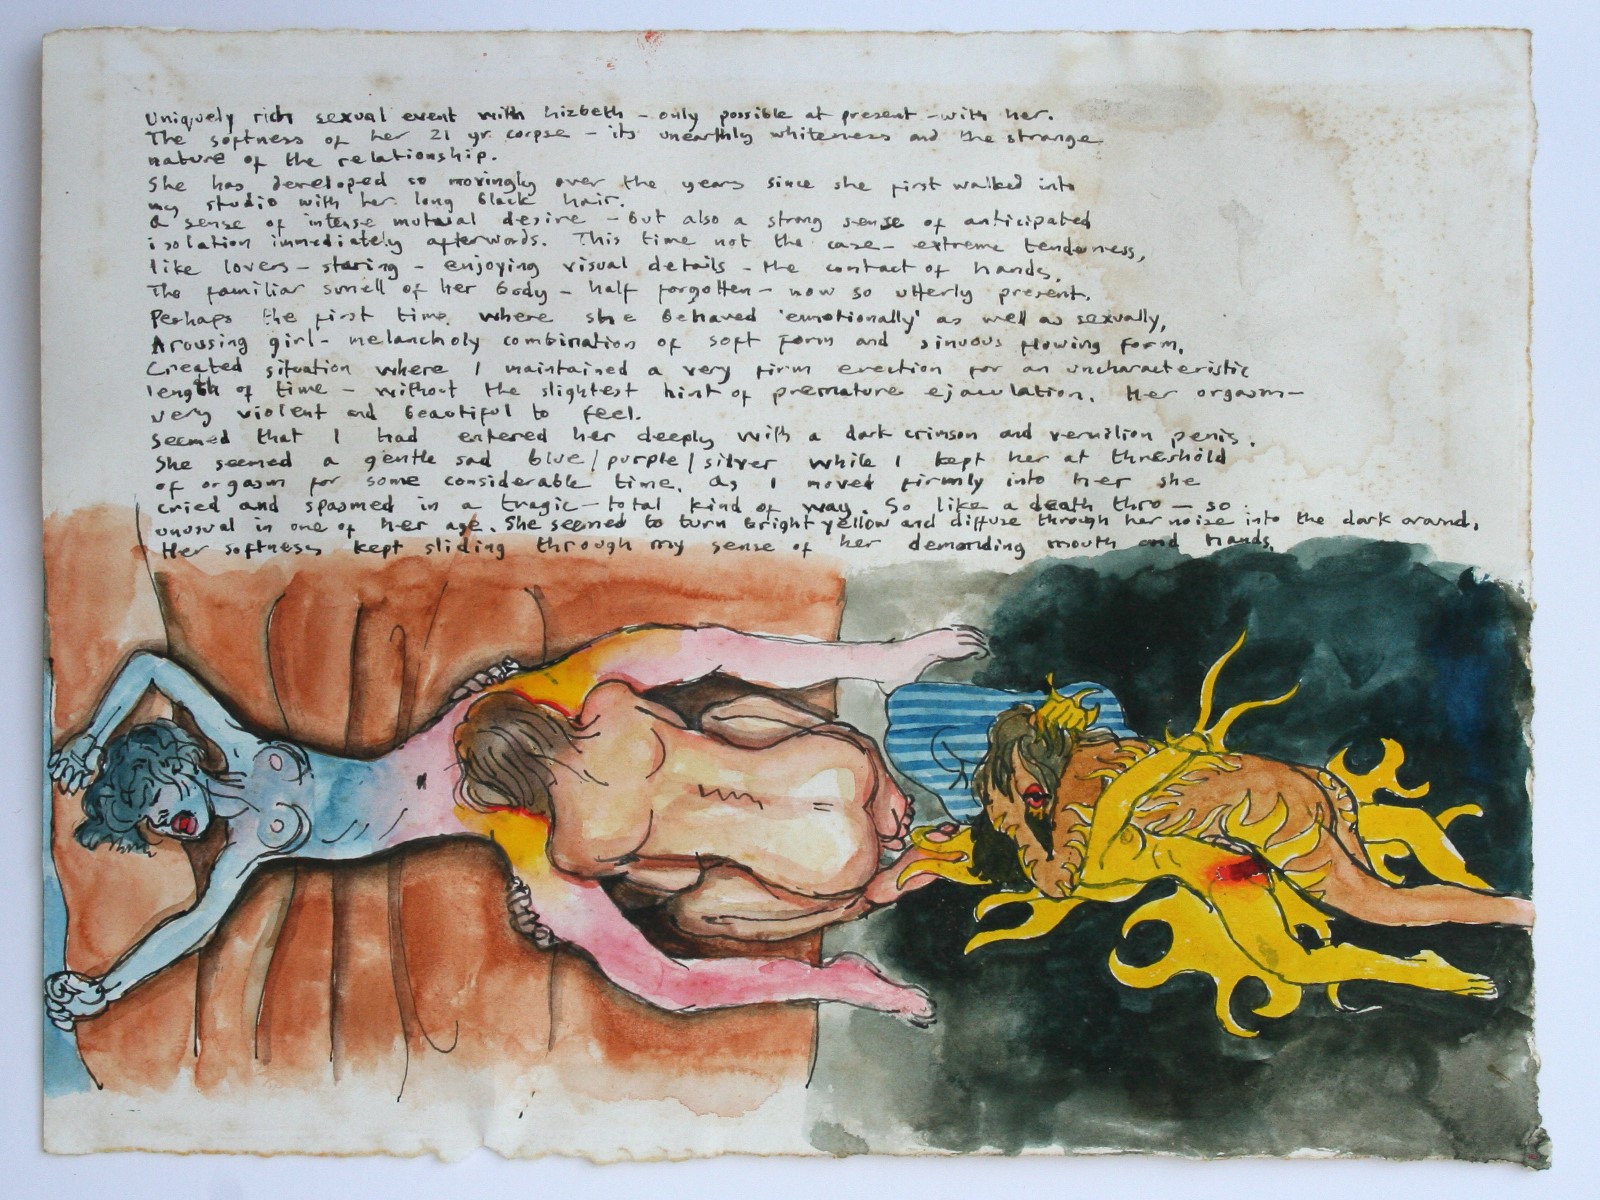 Uniquely rich sexual event with hizbeth - only possible at present - with her.
The softness of her 21 yr. corpse - its unearthly whiteness and the strange
nature of the relationship.
She has developed so movingly over the years since she first walked into
my studio with her long black hair.
A sense of intense mutual desire - but also a strong sense of anticipated
isolation immediately afterwords. This time not the case - extreme tenderness,
like lovers - staring - enjoying visual details - the contact of hands.
The familiar smell of her body - half forgotten - now so utterly present.
Perhaps the first time where she behaved 'emotionally' as well as sexually,
Arousing girl - melancholy combination of soft form and sinuous flowing form.
Created situation where I maintained a very firm erection for an uncharacteristic
length of time - without the slightest hint of premature ejaculation. Her orgasm -
very violent and beautiful to feel.
Seemed that I had entered her deeply with a dark crimson and vermilion penis.
She seemed a gentle sad blue/purple/silver while I kept her at threshold
of orgasm for some considerable time. As I moved firmly into her she
cried and spasmed in a tragic - total kind of way. So like a death thro - so
unusual in one of her age. She seemed to turn bright yellow and diffuse through her noise into the dark around.
Her softness kept sliding through my sense of her demanding mouth and hands.